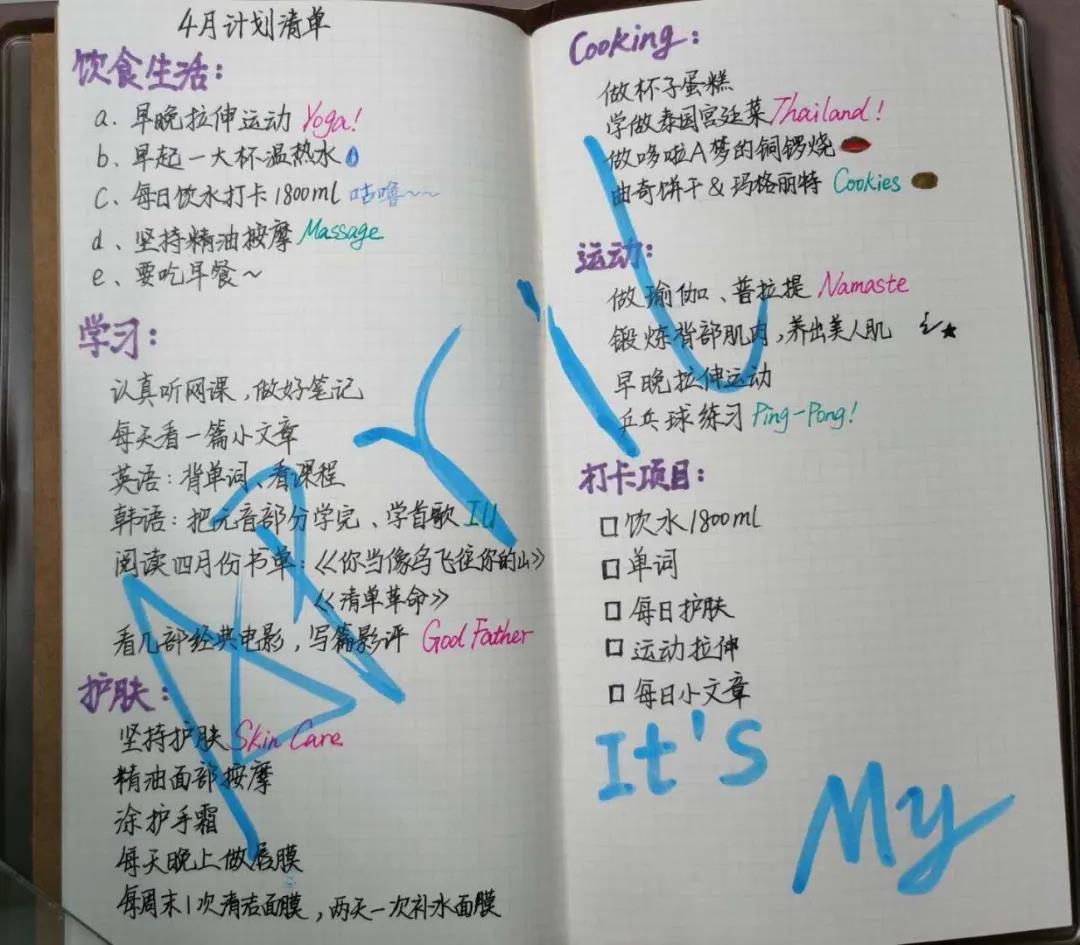 4月计划清单
饮食生活：
a、早晚拉伸运动 Yoga!
b、早起一大杯温热水
c、每日饮水打卡1800ml 咕噜~~
d、坚持精油按摩 Massage
e、要吃早餐~
学习：
认真听网课，做好笔记
每天看一篇小文章
英语：背单词、看课程
韩语：把元音部分学完、学首歌 IU
阅读四月份书单：《你当像鸟飞往你的山》
《清单革命》
看几部经典电影，写篇影评 God Father
护肤：
坚持护肤 Skin Care
精油面部按摩
涂护手霜
每天晚上做唇膜
每周末1次清洁面膜，两天一次补水面膜
Cooking：
做杯子蛋糕
学做泰国宫廷菜 Thailand!
做哆啦A梦的铜锣烧
曲奇饼干&玛格丽特 Cookies
运动：
做瑜伽、普拉提 Namaste
锻炼背部肌肉，养出美人肌
早晚拉伸运动
乒乓球练习 Ping-Pong!
打卡项目：
饮水1800ml
单词
每日护肤
运动拉伸
每日小文章
APriL
It's
My